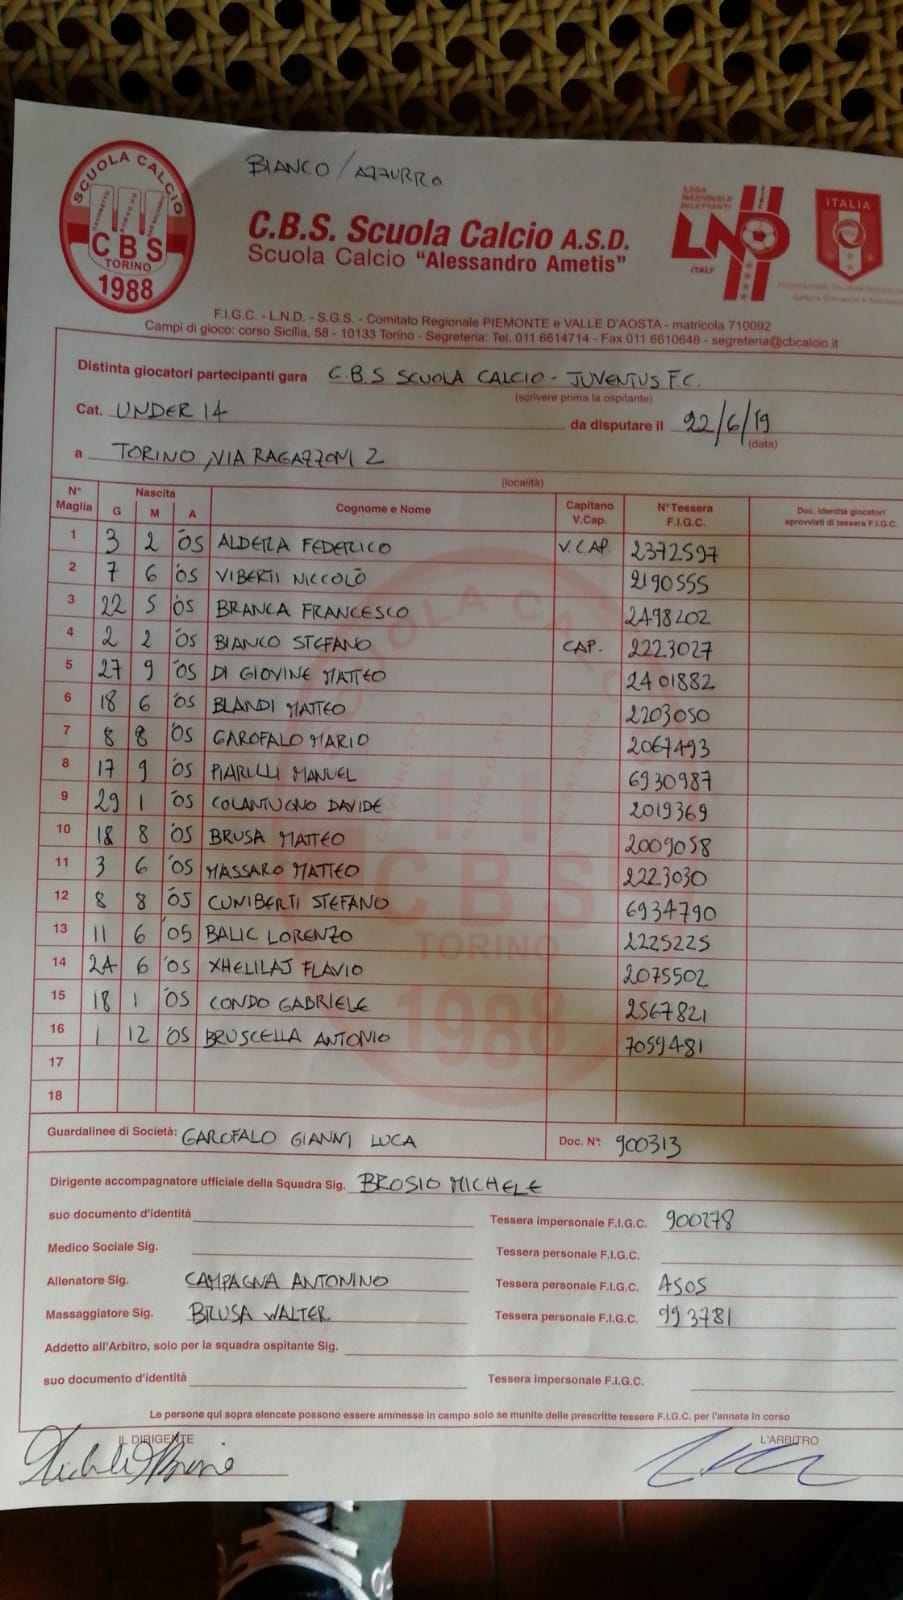 BIANCO / AZZURRO
SCUOLA CALCIO
CBS
TORINO
1988
C.B.S. Scuola Calcio A.S.D.
Scuola Calcio "Alessandro Ametis"
LEGA NAZIONALE DILETTANTI
LND
ITALY
ITALIA
FIGC
F.I.G.C. - L.N.D. - S.G.S. - Comitato Regionale PIEMONTE e VALLE D'AOSTA - matricola 710092
Campi di gioco: corso Sicilia, 58 - 10133 Torino - Segreteria: Tel. 011 6614714 - Fax 011 6610648 - segreteria@cbcalcio.it
Distinta giocatori partecipanti gara C.B.S SCUOLA CALCIO - JUVENTUS F.C.
(scrivere prima la ospitante)
Cat. UNDER 14 da disputare il 22/6/19
(data)
a TORINO, VIA RAGAZZONI 2
(località)
N° Maglia Nascita G M A Cognome e Nome Capitano V.Cap. N° Tessera F.I.G.C. Doc. Identità giocatori sprovvisti di tessera F.I.G.C.
1 3 2 '05 ALDERA FEDERICO V.CAP. 2372597
2 7 6 '05 VIBERTI NICCOLÒ 2190555
3 22 5 '05 BRANCA FRANCESCO 2498202
4 2 2 '05 BIANCO STEFANO CAP. 2223027
5 27 9 '05 DI GIOVINE MATTEO 2401882
6 18 6 '05 BLANDI MATTEO 2203050
7 8 8 '05 GAROFALO MARIO 2067493
8 17 9 '05 PIARULLI MANUEL 6930987
9 29 1 '05 COLANTUONO DAVIDE 2019369
10 18 8 '05 BRUSA MATTEO 2009058
11 3 6 '05 MASSARO MATTEO 2223030
12 8 8 '05 CUNIBERTI STEFANO 6934790
13 11 6 '05 BALIC LORENZO 2225225
14 24 6 '05 XHELILAJ FLAVIO 2075502
15 18 1 '05 CONDO GABRIELE 2567821
16 1 12 '05 BRUSCELLA ANTONIO 7059481
17
18
Guardalinee di Società: GAROFALO GIANNI LUCA Doc. N°: 900313
Dirigente accompagnatore ufficiale della Squadra Sig. BROSIO MICHELE
suo documento d'identità Tessera impersonale F.I.G.C. 900278
Medico Sociale Sig. Tessera personale F.I.G.C.
Allenatore Sig. CAMPAGNA ANTONINO Tessera personale F.I.G.C. A505
Massaggiatore Sig. BRUSA WALTER Tessera personale F.I.G.C. 993781
Addetto all'Arbitro, solo per la squadra ospitante Sig.
suo documento d'identità Tessera impersonale F.I.G.C.
Le persone qui sopra elencate possono essere ammesse in campo solo se munite delle prescritte tessere F.I.G.C. per l'annata in corso
IL DIRIGENTE L'ARBITRO